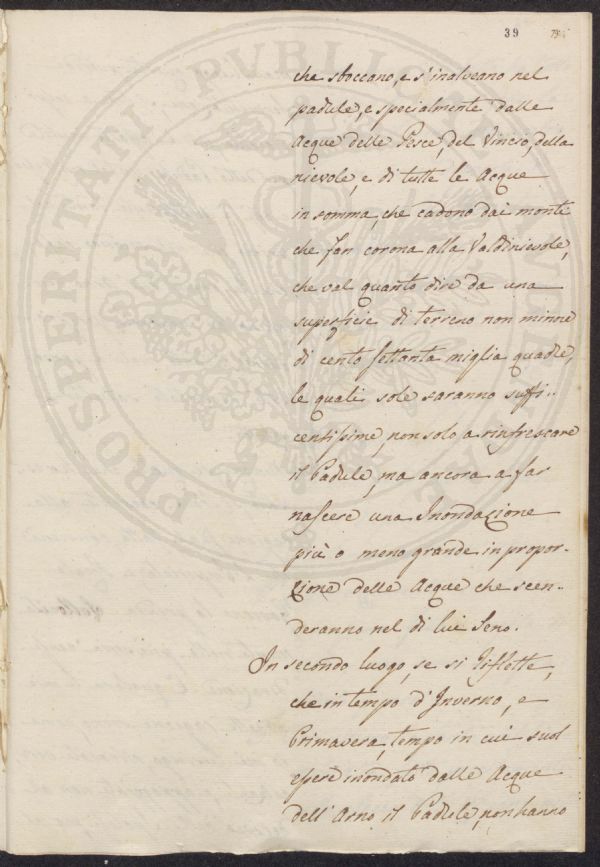 39
che sboccano, e s'inalveano nel
padule, e specialmente dalle
Acque delle Pesce, del Vincio, della
nievole, e di tutte le Acque
in somma, che cadono dai monti
che fan corona alla Valdinievole,
che val quanto dire da una
superficie di terreno non minore
di cento settanta miglia quadre,
le quali sole saranno suffi..
centissime, non solo a rinfrescare
il Padule, ma ancora a far
nascere una Inondazione
più o meno grande in propor-
zione delle Acque che scen-
deranno nel di lui Seno.
In secondo luogo, se si riflette,
che in tempo d'Inverno, e
Primavera, tempo in cui suol
essere inondato dalle Acque
dell'Arno il Padule, non hanno
PROSPERITATI PUBLICAE